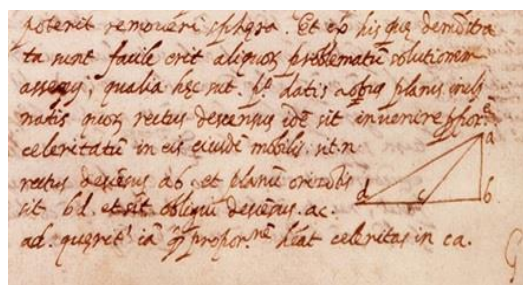 poterit removeri sphęra. Et ex his quę demõstra
ta sunt facile erit aliquorũ problematũ solutionem
assequi, qualia hęc sunt. pº datis duobus planis incli
natis quorũ rectus descensus idẽ sit invenire propor.ẽ
celeritatũ in eis eiusdẽ mobilis. sit .n.
rectus descẽsus ab. et planũ orizõtis
sit bd. et sit obliquũ descẽsus. ac.
ad. querit iã quã propor.nẽ hẽat celeritas in ca.
a
d c b